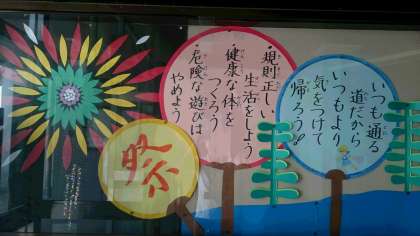 いつも通る
道だから
いつもより
気をつけて
帰ろう!!
・規則正しい
生活をしよう
・健康な体を
つくろう
・危険な遊びは
やめよう
祭